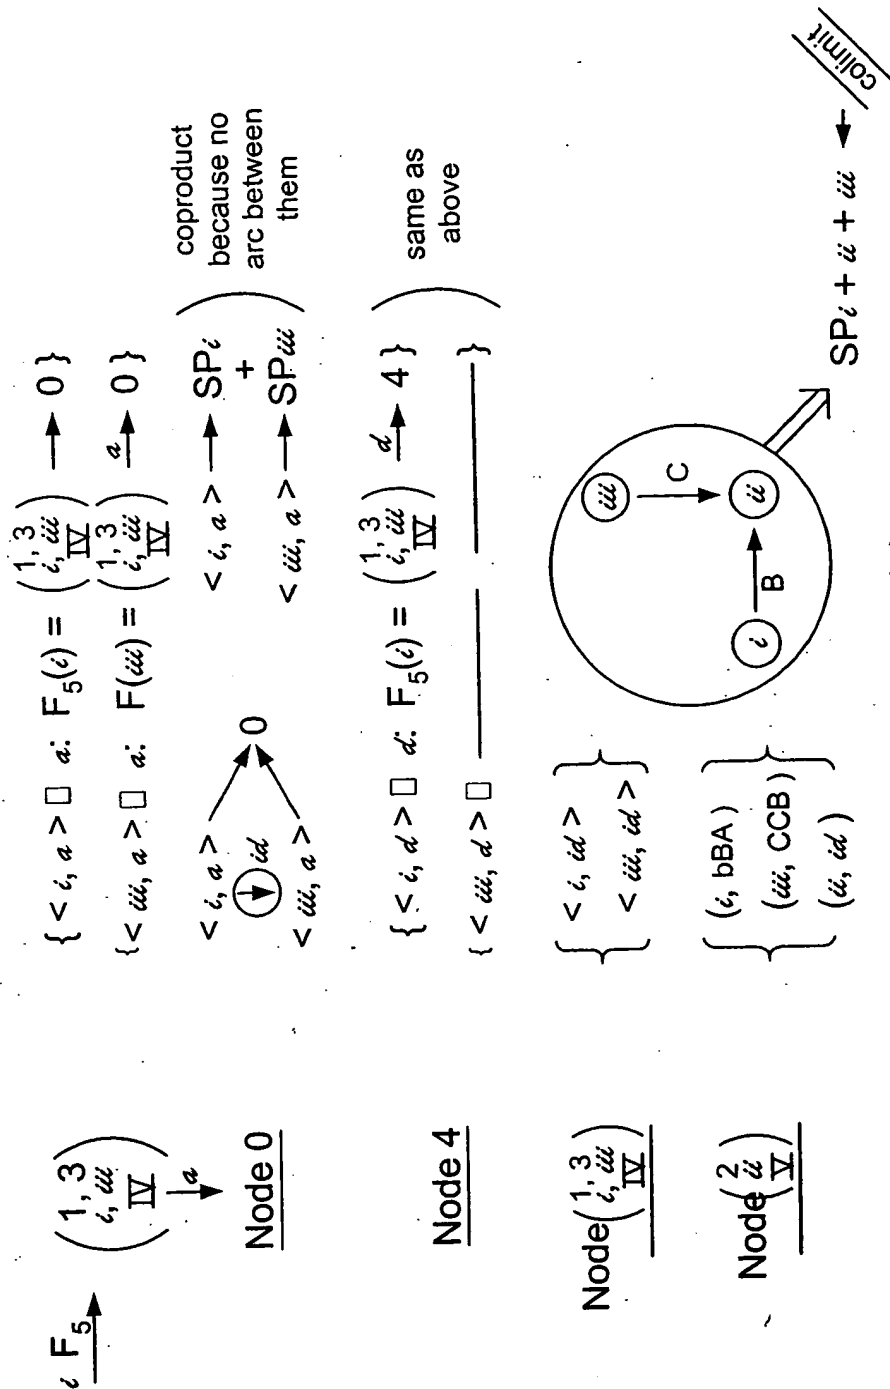 i F5 → (1, 3 i, iii IV)
↓ a
{ < i, a > □ a: F5(i) = (1, 3 i, iii IV) → 0 }
{ < iii, a > □ a: F(iii) = (1, 3 i, iii IV) a → 0 }
Node 0
< i, a >
id
0
< iii, a >
< i, a > → SPi
+
< iii, a > → SPiii
coproduct
because no
arc between
them
Node 4
{ < i, d > □ d: F5(i) = (1, 3 i, iii IV) d → 4 }
{ < iii, d > □ }
same as
above
Node (1, 3 i, iii IV)
{ < i, id >
< iii, id > }
Node (2 ii V)
{ (i, bBA)
(iii, CCB)
(ii, id) }
iii
C
i
B
ii
SPi + ii + iii
collimit